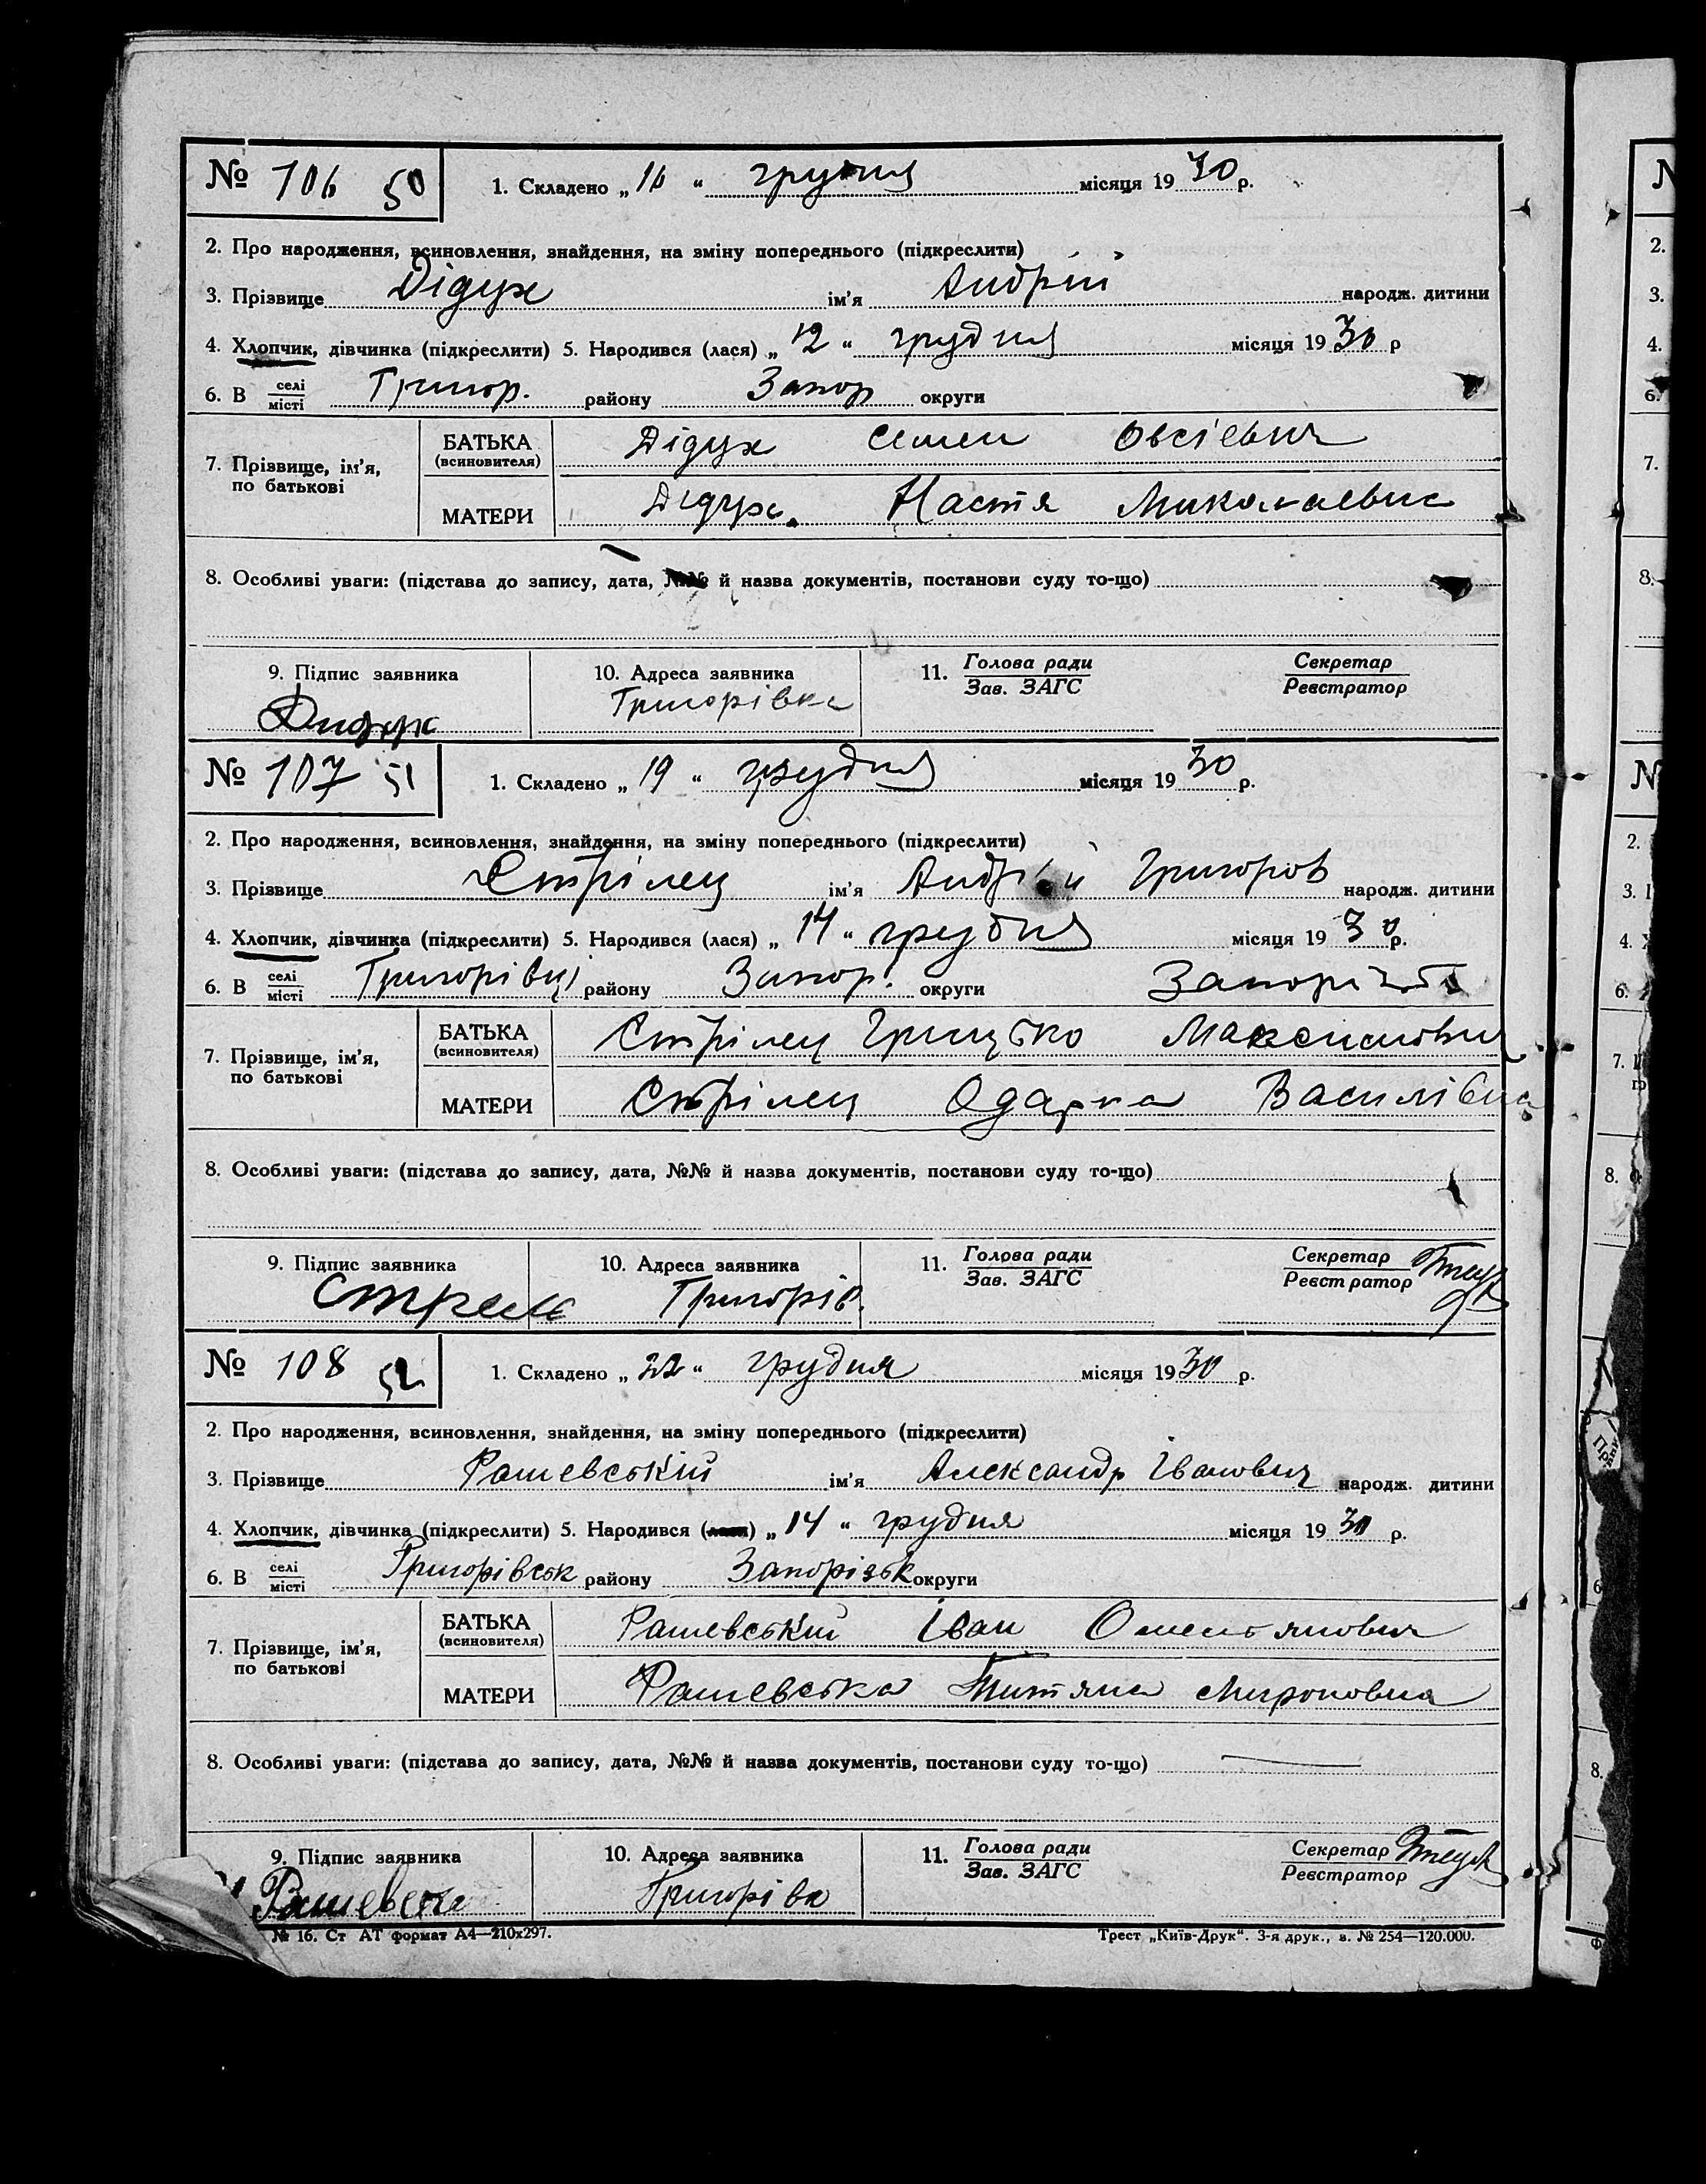 № 106 50 1. Складено „ 16 “ грудня місяця 19 30 р.
2. Про народження, всиновлення, знайдення, на зміну попереднього (підкреслити)
3. Прізвище Дідух ім’я Андрій народж. дитини
4. Хлопчик, дівчинка (підкреслити) 5. Народився (лася) „ 12 “ грудня місяця 19 30 р
6. В селі/місті Григор. району Запор округи
7. Прізвище, ім’я, по батькові
БАТЬКА (всиновителя) Дідух Семен Овсієвич
МАТЕРИ Дідух Настя Миколаевна
8. Особливі уваги: (підстава до запису, дата, №№ й назва документів, постанови суду то-що)
9. Підпис заявника 10. Адреса заявника 11. Голова ради/Зав. ЗАГС Секретар/Реєстратор
Григорівка
№ 107 51 1. Складено „ 19 “ грудня місяця 19 30 р.
2. Про народження, всиновлення, знайдення, на зміну попереднього (підкреслити)
3. Прізвище Стрілец ім’я Андрій Григоров народж. дитини
4. Хлопчик, дівчинка (підкреслити) 5. Народився (лася) „ 14 “ грудня місяця 19 30 р.
6. В селі/місті Григорівці району Запор. округи
7. Прізвище, ім’я, по батькові
БАТЬКА (всиновителя) Стрілец Грицько Максимович
МАТЕРИ Стрілец Одарка Василівна
8. Особливі уваги: (підстава до запису, дата, №№ й назва документів, постанови суду то-що)
9. Підпис заявника 10. Адреса заявника 11. Голова ради/Зав. ЗАГС Секретар/Реєстратор
Григорів.
№ 108 52 1. Складено „ 22 “ грудня місяця 19 30 р.
2. Про народження, всиновлення, знайдення, на зміну попереднього (підкреслити)
3. Прізвище Рашевський ім’я Александр Іванович народж. дитини
4. Хлопчик, дівчинка (підкреслити) 5. Народився (лася) „ 14 “ грудня місяця 19 30 р.
6. В селі/місті Григорівськ району Запорізьк округи
7. Прізвище, ім’я, по батькові
БАТЬКА (всиновителя) Рашевський Іван Омельянович
МАТЕРИ Рашевська Титяна Мироновна
8. Особливі уваги: (підстава до запису, дата, №№ й назва документів, постанови суду то-що)
9. Підпис заявника 10. Адреса заявника 11. Голова ради/Зав. ЗАГС Секретар/Реєстратор
Григорівка
№ 16. Ст АТ формат А4—210х297. Трест „Київ-Друк“. 3-я друк., з. № 254—120.000.